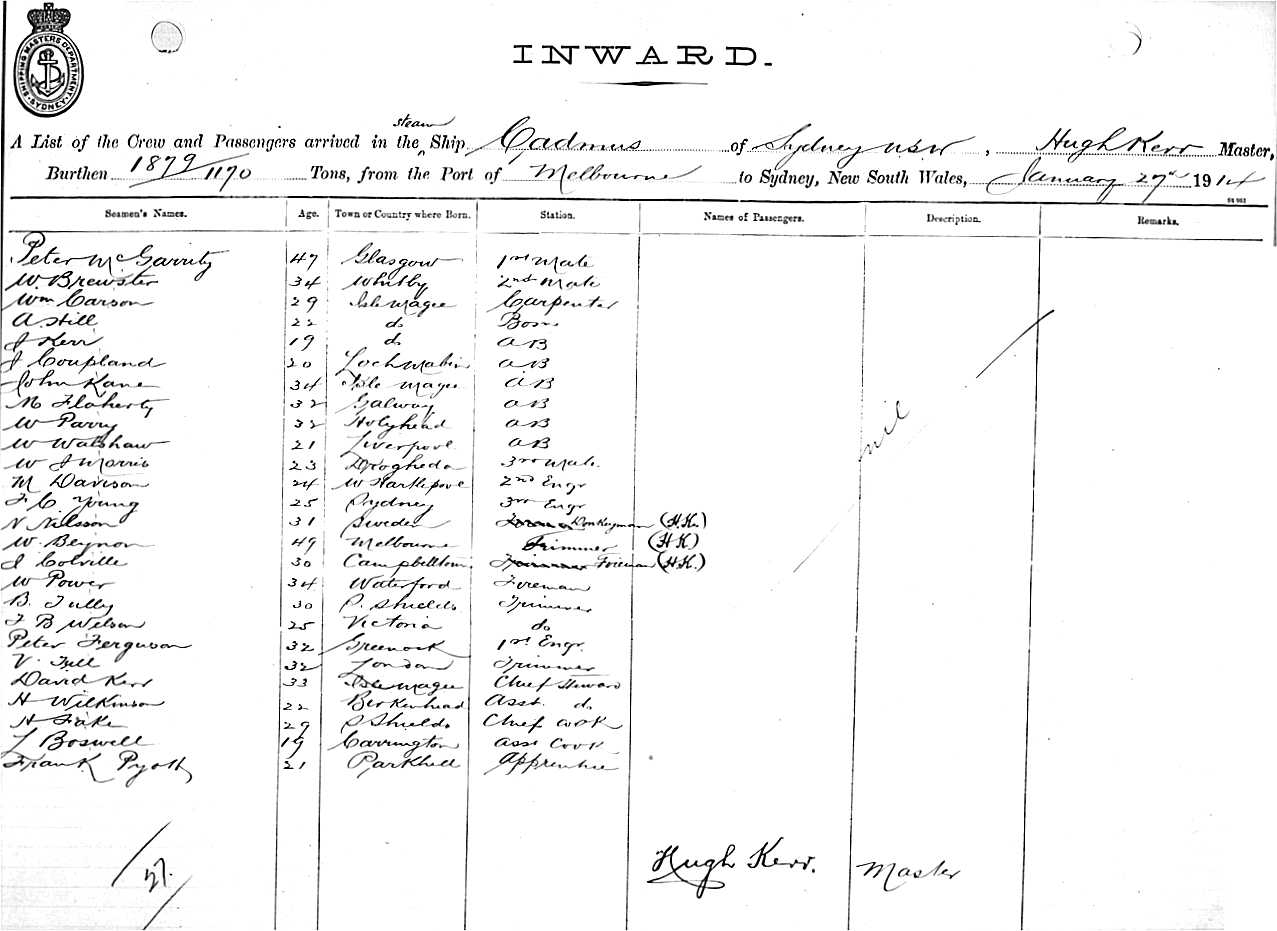 SHIPPING MASTERS DEPARTMENT SYDNEY
INWARD.
A List of the Crew and Passengers arrived in the steam Ship Cadmus of Sydney NSW, Hugh Kerr Master,
Burthen 1879/1170 Tons, from the Port of Melbourne to Sydney, New South Wales, January 27th 1914
Seamen's Names. Age. Town or Country where Born. Station. Names of Passengers. Description. Remarks.
Peter McGarrity 47 Glasgow 1st Mate
W. Brewster 34 Whitby 2nd Mate
Wm Carson 29 Isle Magee Carpenter
A. Hill 22 do Bosn
J Kerr 19 do AB
J Coupland 20 Lochmaben AB
John Kane 34 Isle Magee AB
M Flaherty 32 Galway AB
W Parry 32 Holyhead AB
W Walshaw 21 Liverpool AB
W J Morris 23 Drogheda 3rd Mate.
M Davison 24 W Hartlepool 2nd Engr
F C Young 25 Sydney 3rd Engr
N Nilsson 31 Sweden Donkeyman (H.K.)
W. Beynon 49 Melbourne Trimmer (H.K)
J Colville 30 Campbelltown Trimmer Foreman (H.K.)
W Power 34 Waterford Foreman
B. Tully 30 S. Shields Trimmer
F B Welson 25 Victoria do
Peter Ferguson 32 Greenock 1st Engr.
V. Tull 32 London Trimmer
David Kerr 33 Isle Magee Chief Steward
H Wilkinson 22 Berkenhead Asst. do
H Fake 29 S Shields Chief Cook
L Boswell 19 Carrington Asst Cook
Frank Pyott 21 Parkhill Apprentice
nil
27.
Hugh Kerr. Master